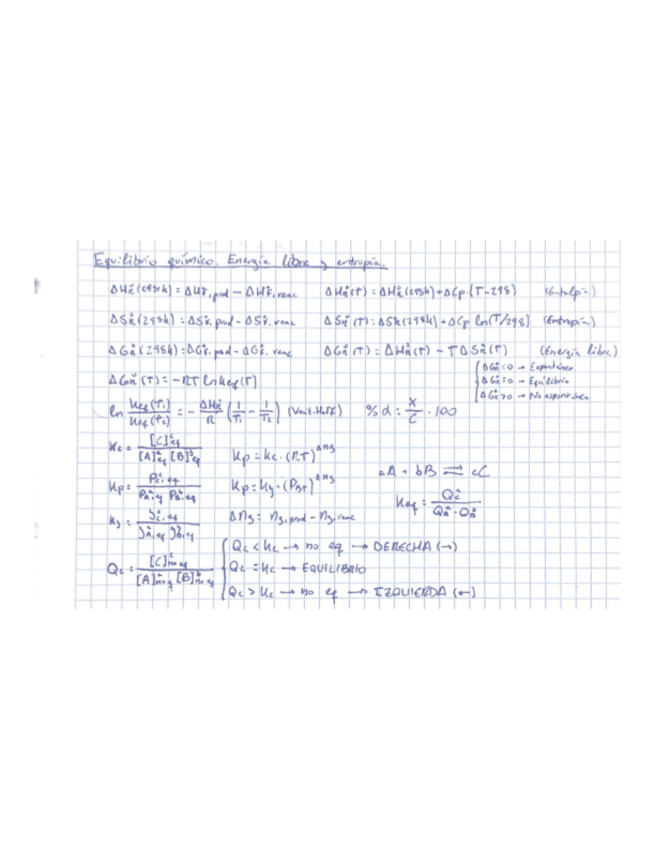 Equilibrio químico. Energía libre y entropía.
ΔHR°(298K) = ΔHf°, prod − ΔHf°, reac    ΔHR°(T) = ΔHR°(298K) + ΔCp·(T−298)    (Entalpía)
ΔSR°(298K) = ΔSf°, prod − ΔSf°, reac    ΔSR°(T) = ΔSR(298K) + ΔCp ln(T/298)    (Entropía)
ΔGR°(298K) = ΔGf°, prod − ΔGf°, reac    ΔGR°(T) = ΔHR°(T) − TΔSR°(T)    (Energía libre)
ΔGR° < 0 → Espontáneo
ΔGR°(T) = −RT ln Keq(T)    ΔGR° = 0 → Equilibrio
ΔGR° > 0 → No espontáneo
ln Keq(T1)/Keq(T2) = − ΔHR°/R (1/T1 − 1/T2) (Vant-Hoff)    %d = x/C · 100
Kc = [C]^c eq / [A]^a eq [B]^b eq    Kp = Kc·(RT)^Δng
aA + bB ⇌ cC
Kp = Pc^c, eq / Pa^a, eq Pb^b, eq    Kp = Ky·(PBT)^Δng
Keq = Qc^c / Qa^a · Qb^b
Ky = yc^c, eq / ya^a, eq yb^b, eq    Δng = ng, prod − ng, reac
Qc < Kc → no eq → DERECHA (→)
Qc = [C]^c no eq / [A]^a no eq [B]^b no eq    Qc = Kc → EQUILIBRIO
Qc > Kc → no eq → IZQUIERDA (←)